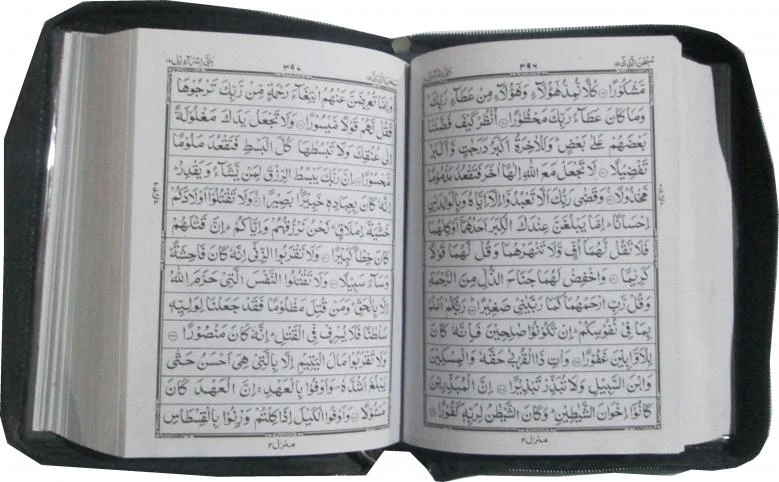 سبحن الذي ١٥
٣٩٦
بنی اسرآءیل ١٧
مَّشْكُوْرًا ۝ كُلًّا نُّمِدُّ هٰٓؤُلَآءِ وَهٰٓؤُلَآءِ مِنْ عَطَآءِ رَبِّكَ ؕ
وَمَا كَانَ عَطَآءُ رَبِّكَ مَحْظُوْرًا ۝ اُنْظُرْ كَيْفَ فَضَّلْنَا
بَعْضَهُمْ عَلٰى بَعْضٍ ؕ وَلَلْاٰخِرَةُ اَكْبَرُ دَرَجٰتٍ وَّاَكْبَرُ
تَفْضِيْلًا ۝ لَا تَجْعَلْ مَعَ اللّٰهِ اِلٰهًا اٰخَرَ فَتَقْعُدَ مَذْمُوْمًا
مَّخْذُوْلًا ۝ وَقَضٰى رَبُّكَ اَلَّا تَعْبُدُوْٓا اِلَّآ اِيَّاهُ وَبِالْوَالِدَيْنِ
اِحْسَانًا ؕ اِمَّا يَبْلُغَنَّ عِنْدَكَ الْكِبَرَ اَحَدُهُمَآ اَوْ كِلٰهُمَا
فَلَا تَقُلْ لَّهُمَآ اُفٍّ وَّلَا تَنْهَرْهُمَا وَقُلْ لَّهُمَا قَوْلًا
كَرِيْمًا ۝ وَاخْفِضْ لَهُمَا جَنَاحَ الذُّلِّ مِنَ الرَّحْمَةِ
وَقُلْ رَّبِّ ارْحَمْهُمَا كَمَا رَبَّيٰنِيْ صَغِيْرًا ۝ رَبُّكُمْ اَعْلَمُ
بِمَا فِيْ نُفُوْسِكُمْ ؕ اِنْ تَكُوْنُوْا صٰلِحِيْنَ فَاِنَّهٗ كَانَ
لِلْاَوَّابِيْنَ غَفُوْرًا ۝ وَاٰتِ ذَا الْقُرْبٰى حَقَّهٗ وَالْمِسْكِيْنَ
وَابْنَ السَّبِيْلِ وَلَا تُبَذِّرْ تَبْذِيْرًا ۝ اِنَّ الْمُبَذِّرِيْنَ
كَانُوْٓا اِخْوَانَ الشَّيٰطِيْنِ ؕ وَكَانَ الشَّيْطٰنُ لِرَبِّهٖ كَفُوْرًا ۝
منزل ٤
سبحن الذي ١٥
٣٩٧
بنی اسرآءیل ١٧
وَاِمَّا تُعْرِضَنَّ عَنْهُمُ ابْتِغَآءَ رَحْمَةٍ مِّنْ رَّبِّكَ تَرْجُوْهَا
فَقُلْ لَّهُمْ قَوْلًا مَّيْسُوْرًا ۝ وَلَا تَجْعَلْ يَدَكَ مَغْلُوْلَةً
اِلٰى عُنُقِكَ وَلَا تَبْسُطْهَا كُلَّ الْبَسْطِ فَتَقْعُدَ مَلُوْمًا
مَّحْسُوْرًا ۝ اِنَّ رَبَّكَ يَبْسُطُ الرِّزْقَ لِمَنْ يَّشَآءُ وَيَقْدِرُ ؕ
اِنَّهٗ كَانَ بِعِبَادِهٖ خَبِيْرًۢا بَصِيْرًا ۝ وَلَا تَقْتُلُوْٓا اَوْلَادَكُمْ
خَشْيَةَ اِمْلَاقٍ ؕ نَحْنُ نَرْزُقُهُمْ وَاِيَّاكُمْ ؕ اِنَّ قَتْلَهُمْ
كَانَ خِطْاً كَبِيْرًا ۝ وَلَا تَقْرَبُوا الزِّنٰٓى اِنَّهٗ كَانَ فَاحِشَةً ؕ
وَسَآءَ سَبِيْلًا ۝ وَلَا تَقْتُلُوا النَّفْسَ الَّتِيْ حَرَّمَ اللّٰهُ
اِلَّا بِالْحَقِّ ؕ وَمَنْ قُتِلَ مَظْلُوْمًا فَقَدْ جَعَلْنَا لِوَلِيِّهٖ
سُلْطٰنًا فَلَا يُسْرِفْ فِّي الْقَتْلِ ؕ اِنَّهٗ كَانَ مَنْصُوْرًا ۝
وَلَا تَقْرَبُوْا مَالَ الْيَتِيْمِ اِلَّا بِالَّتِيْ هِيَ اَحْسَنُ حَتّٰى
يَبْلُغَ اَشُدَّهٗ ۪ وَاَوْفُوْا بِالْعَهْدِ ۚ اِنَّ الْعَهْدَ كَانَ
مَسْـُٔوْلًا ۝ وَاَوْفُوا الْكَيْلَ اِذَا كِلْتُمْ وَزِنُوْا بِالْقِسْطَاسِ
منزل ٤